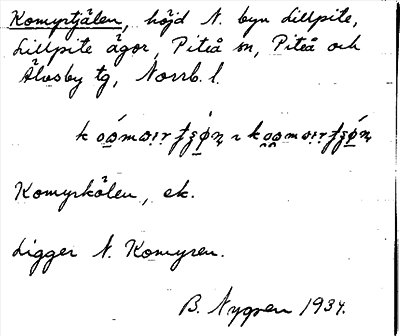 Komyrtjålen, höjd N. byn Lillpite,
Lillpite ägor, Piteå sn, Piteå och
Älvsby tg, Norrb. l.
Komyrkölen, ek.
Ligger N. Komyren.
B. Nygren 1934.